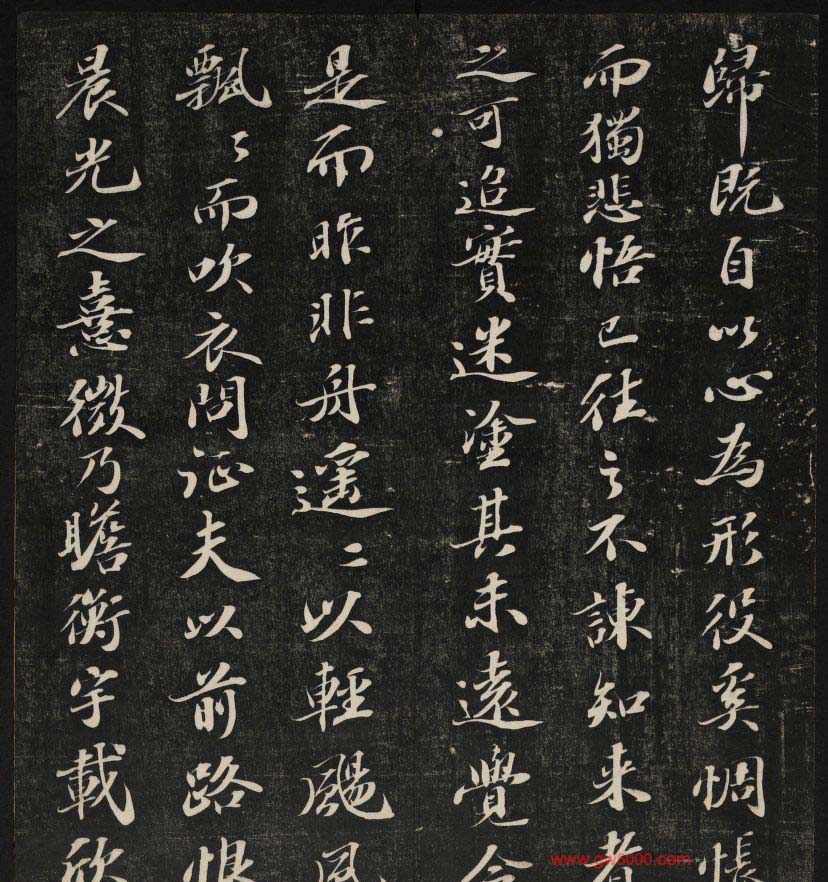 歸既自以心為形役奚惆悵
而獨悲悟已往之不諫知来者
之可追實迷塗其未遠覺今
是而昨非舟遥々以輕颺風
飄々而吹衣問征夫以前路恨
晨光之熹微乃瞻衡宇載欣